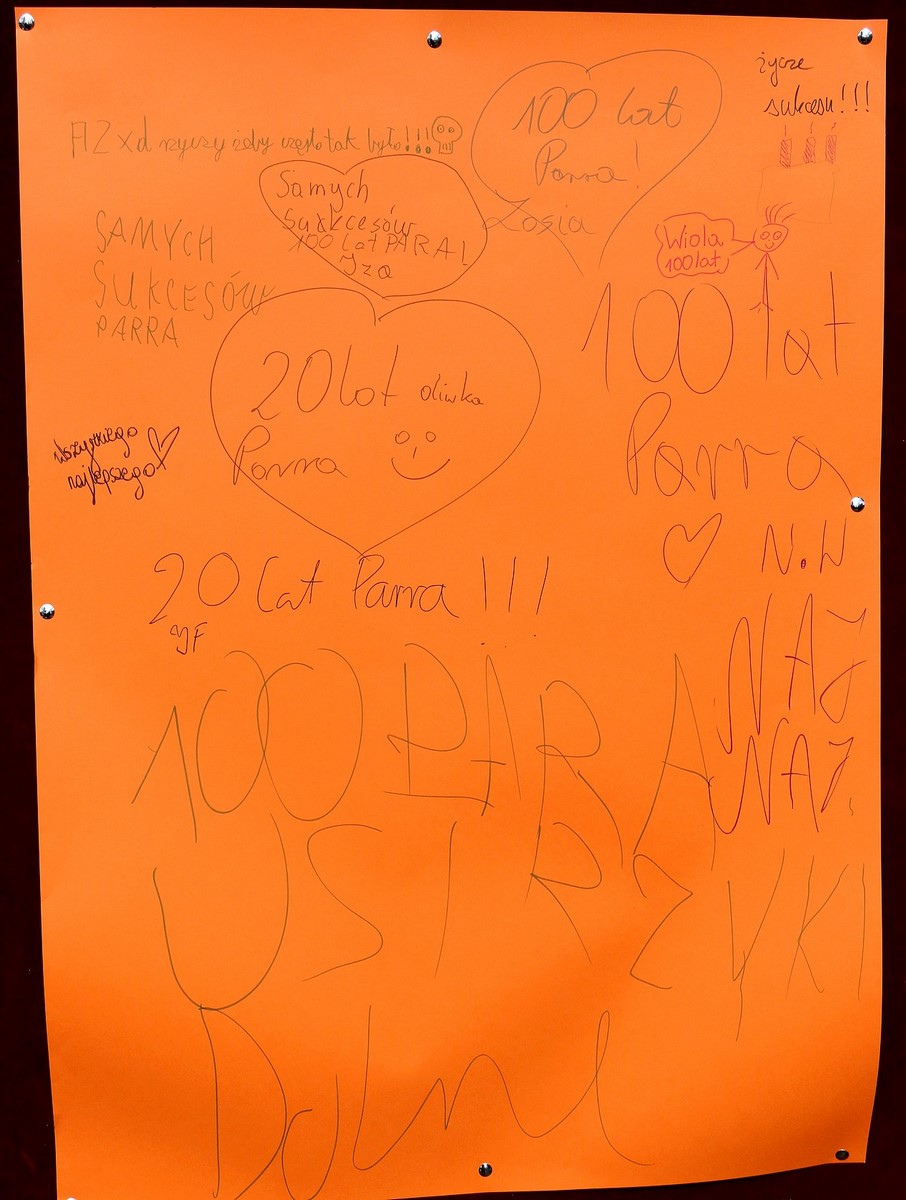 życze
sukcesu!!!
100 lat
Parra!
Zosia
AZ xd życzy żeby często tak było!!!
Samych
Sukcesów
100 lat PARA!
Iza
SAMYCH
SUKCESÓW
PARRA
Wiola
100 lat
100 lat
Parra
N.W
20 lat oliwka
Parra
wszystkiego
najlepszego
20 lat Parra!!!
JF
NAJ
NAJ
100 PARA
USTRZYKI
Dolne